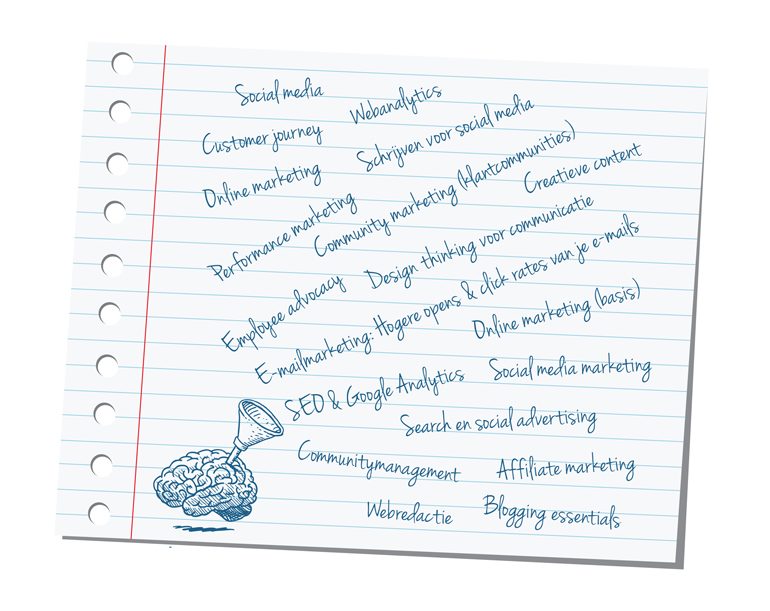 Social media
Webanalytics
Customer journey
Schrijven voor social media
Online marketing
Community marketing (klantcommunities)
Creatieve content
Performance marketing
Design thinking voor communicatie
Employee advocacy
E-mailmarketing: Hogere opens & click rates van je e-mails
Online marketing (basis)
SEO & Google Analytics
Social media marketing
Search en social advertising
Communitymanagement
Affiliate marketing
Webredactie
Blogging essentials